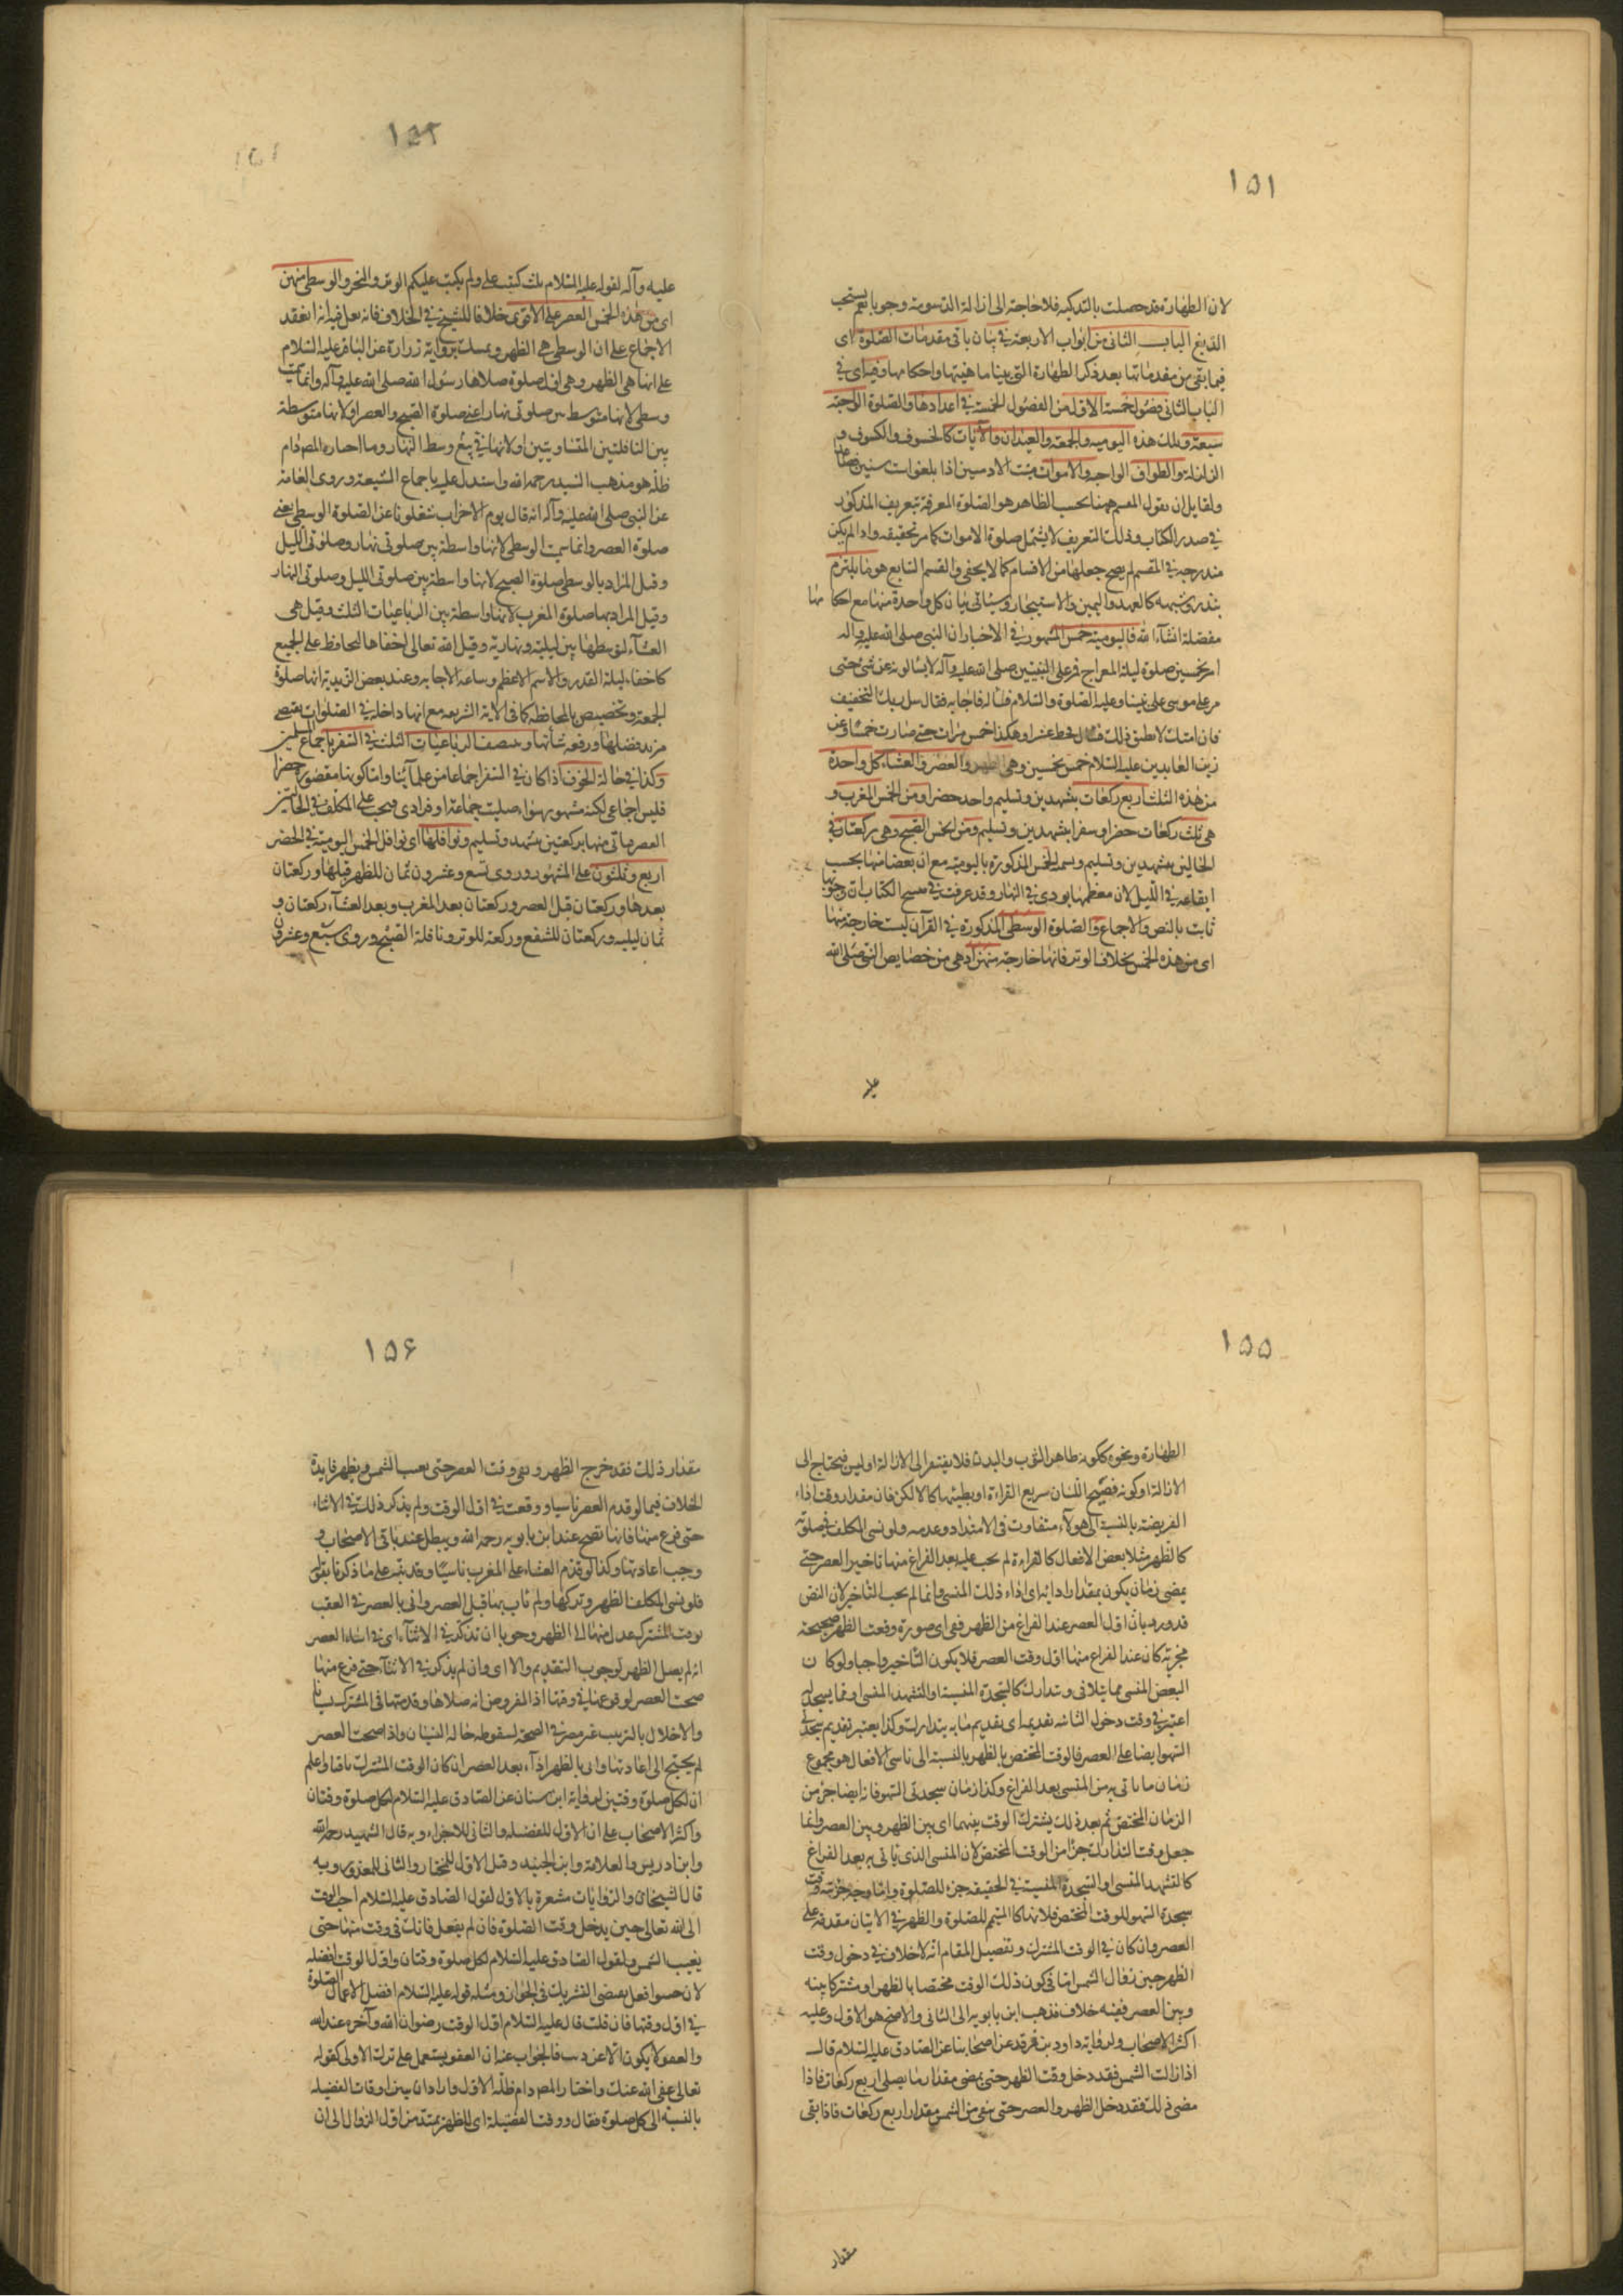 ١٥١
لان الطهارة قد حصلت بالتذكية فلا حاجة الى ازالة الدسومة وجوبا نعم يستحب
الدبغ الباب الثاني من ابواب الاربعة في بيان باقي مقدمات الصلوة اى
فيما بقى من مقدماتها بعد ذكر الطهارة التي بينا ماهيتها واحكامها وفيه اى في
الباب الثاني فصول خمسة الاول من الفصول الخمسة في اعدادها والصلوة الواجبة
سبعة وتلك هذه اليومية والجمعة والعيدان والآيات كالخسوف والكسوف و
الزلزلة والطواف الواجب والاموات ميت الادميين اذا بلغوا ست سنين فصاعدا
ولقايل ان يقول المقسم ههنا بحسب الظاهر هو الصلوة المعرفة بتعريف المذكور
في صدر الكتاب وذلك التعريف لا يشمل صلوة الاموات كما مر تحقيقه واذا لم يكن
مندرجة في المقسم لم يصح جعلها من الاقسام كما لا يخفى والقسم السابع هو ما يلتزم
بنذر وشبهه كالعهد واليمين والاستيجار وسيأتي بيان كل واحدة منها مع احكامها
مفصلة انشآء الله فاليومية خمس المشهور في الاخبار ان النبي صلى الله عليه واله
امر بخمسين صلوة ليلة المعراج فمر على النبيين صلى الله عليه وآله لا يسالونه عن شئ حتى
مر على موسى على نبينا وعليه الصلوة والسلام فساله فاجابه فقال سل ربك التخفيف
فان امتك لا تطيق ذلك فسال فحط عشرا وهكذا خمس مرات حتى صارت خمسا وعن
زين العابدين عليه السلام خمس بخمسين وهي الظهر والعصر والعشاء كل واحدة
من هذه الثلث اربع ركعات بتشهدين وتسليم واحد حضرا ومن الخمس المغرب و
هي ثلث ركعات حضرا وسفرا بتشهدين وتسليم ومن الخمس الصبح وهي ركعتان في
الحالين بتشهد وتسليم وسمى الخمس المذكورة باليومية مع ان بعضا منها بحسب
ايقاعه في الليل لان معظمها يودى في النهار وقد عرفت في مفتتح الكتاب ان وجوبها
ثابت بالنص والاجماع والصلوة الوسطى المذكورة في القرآن ليست خارجة منها
اى من هذه الخمس بخلاف الوتر فانها خارجة منهن اذ هي من خصايص النبي صلى الله
عليه
١٥٢
عليه وآله لقوله عليه السلام ثلث كتب على ولم يكتب عليكم الوتر والنحر والوسطى منهن
اى من هذه الخمس العصر على الاقوى خلافا للشيخ في الخلاف فانه نقل فيه انه انعقد
الاجماع على ان الوسطى هي الظهر وتمسك برواية زرارة عن الباقر عليه السلام
على انها هي الظهر وهي اول صلوة صلاها رسول الله صلى الله عليه وآله وانما سميت
وسطى لانها متوسط بين صلوتي نهار اعنى صلوة الصبح والعصر او لانها متوسطة
بين النافلتين المتساويتين او لانها في وسط النهار وما اختاره المصـ دام
ظله هو مذهب السيد رحمه الله واستدل عليه باجماع الشيعة وروى العامة
عن النبي صلى الله عليه وآله انه قال يوم الاحزاب شغلونا عن الصلوة الوسطى يعنى
صلوة العصر وانما سميت الوسطى لانها واسطة بين صلوتى نهار وصلوتى الليل
وقيل المراد بالوسطى صلوة الصبح لانها واسطة بين صلوتى الليل وصلوتى النهار
وقيل المراد بها صلوة المغرب لانها واسطة بين الرباعيات الثلث وقيل هي
العشآء لتوسطها بين ليلية ونهارية وقيل الله تعالى اخفاها للحافظ على الجميع
كاخفاء ليلة القدر والاسم الاعظم وساعة الاجابة وعند بعض الزيدية انها صلوة
الجمعة وتخصيص بالمحافظة كما في الاية الشريفة مع انها داخلة في الصلوات يقتضى
مزيد فضلها ورفعة شأنها وينتصف الرباعيات الثلث في السفر باجماع المسلمين
وكذا في حالة الخوف اذا كان في السفر اجماعا من علمآئنا واما كونها مقصورة حضرا
فليس اجماعى لكنه مشهور سواء صليت جماعة او فرادى ويجب على المكلف في الحالتين
القصر ياتى منها بركعتين بتشهد وتسليم ونوافلها اى نوافل الخمس اليومية في الحضر
اربع وثلثون على المشهور وروى تسع وعشرون ثمان للظهر قبلها وركعتان
بعدها وركعتان قبل العصر وركعتان بعد المغرب وبعد العشآء ركعتان و
ثمان ليليه وركعتان للشفع وركعة للوتر ونافلة الصبح وروى سبع وعشرون
١٥٥
الطهارة ونحوه ككونه طاهر الثوب والبدن فلا يفتقر الى الازالة او ليس فيحتاج الى
الازالة او كونه فصيح اللسان سريع القراءة او بطيئها كالالكن فان مقدار وقت اداء
الفريضة بالنسبة الى هولاء متفاوت في الامتداد وعدمه ولو نسى المكلف في صلوته
كالظهر مثلا بعض الافعال كالقراءة لم يجب عليه بعد الفراغ منها تاخير العصر حتى
يمضى زمان يكون بمقدار ادائه اى اداء ذلك المنسى وانما لم يجب التاخير لان النص
قد ورد بان اول العصر عند الفراغ من الظهر ففي اى صورة وقعت الظهر صحيحة
مجزية كان عند الفراغ منها اول وقت العصر فلا يكون التاخير واجبا ولو كان
البعض المنسى مما يتلافى ويتدارك كالسجدة المنسية او التشهد المنسى او مما يسجد له
اعتبر في وقت دخول الثانية تقديمه اى تقديم ما به يتدارك وكذا يعتبر تقديم سجدتى
السهو ايضا على العصر فالوقت المختص بالظهر بالنسبة الى ناسى الافعال هو مجموع
زمان ما ياتى به من المنسى بعد الفراغ وكذا زمان سجدتى السهو فانه ايضا جزء من
الزمان المختص ثم بعد ذلك يشترك الوقت بينهما اى بين الظهر وبين العصر وانما
جعل وقت التدارك جزءا من الوقت المختص لان المنسى الذى ياتى به بعد الفراغ
كالتشهد المنسى او السجدة المنسية في الحقيقة جزء للصلوة واما وجه جزئية وقت
سجدة السهو للوقت المختص فلانها كالمتمم للصلوة والظهر في الاتيان مقدمة على
العصر وان كان في الوقت المشترك وتفصيل المقام انه لا خلاف في دخول وقت
الظهر حين زوال الشمس اما في كون ذلك الوقت مختصا بالظهر او مشتركا بينه
وبين العصر ففيه خلاف فذهب ابن بابويه الى الثانى والاصح هو الاول وعليه
اكثر الاصحاب ولرواية داود بن فرقد عن اصحابنا عن الصادق عليه السلام قال
اذا زالت الشمس فقد دخل وقت الظهر حتى يمضى مقدار ما يصلى اربع ركعات فاذا
مضى ذلك فقد دخل الظهر والعصر حتى بقى من الشمس مقدار اربع ركعات فاذا بقى
مقدار
١٥۶
مقدار ذلك فقد خرج الظهر وبقى وقت العصر حتى يغيب الشمس ويظهر فايدة
الخلاف فيما لو قدم العصر ناسيا ووقعت في اول الوقت ولم يذكر ذلك في الاثناء
حتى فرغ منها فانها تصح عند ابن بابويه رحمه الله ويبطل عند باقى الاصحاب و
وجب اعادتها وكذا لو قدم العشاء على المغرب ناسيا وقد نبه على ما ذكرنا بقوله
فلو نسى المكلف الظهر وتركها ولم ياب بها قبل العصر واتى بالعصر في العقب
بوقت المشترك عدل منها الى الظهر وجوبا ان تذكر في الاثنآء اى في اثناء العصر
انه لم يصل الظهر لوجوب التقديم والا اى وان لم يذكر في الاثنآء حتى فرغ منها
صحت العصر لوقوعها في وقتها اذ المفروض انه صلاها وقدمتها في المشترك نسيانا
والاخلال بالترتيب غير مضر في الصحة لسقوطه حالة النسيان واذا صحت العصر
لم يحتج الى اعادتها واتى بالظهر ادآء بعد العصر ان كان الوقت المشترك باقيا واعلم
ان لكل صلوة وقتين لرواية ابن سنان عن الصادق عليه السلام لكل صلوة وقتان
واكثر الاصحاب على ان الاول للفضيلة والثانى للاجزاء وبه قال الشهيد رحمه الله
وابن ادريس والعلامة وابن الجنيد وقيل الاول للمختار والثانى للمعذور وبه
قال الشيخان والروايات مشعرة بالاول لقول الصادق عليه السلام احب الوقت
الى الله تعالى حين يدخل وقت الصلوة فان لم يفعل فانك في وقت منها حتى
يغيب الشمس ولقول الصادق عليه السلام لكل صلوة وقتان واول الوقت افضله
لان افعل يقتضى التشريك في الجواز ومثله قوله عليه السلام افضل الاعمال الصلوة
في اول وقتها فان قلت قال عليه السلام اول الوقت رضوان الله وآخره عفو الله
والعفو لا يكون الا عن ذنب فالجواب عنه ان العفو يستعمل على ترك الاولى كقوله
تعالى عفى الله عنك واختار المصـ دام ظله الاول واراد ان يبين اوقات الفضيلة
بالنسبة الى كل صلوة فقال ووقت الفضيلة اى للظهر يمتد من اول الزوال الى ان